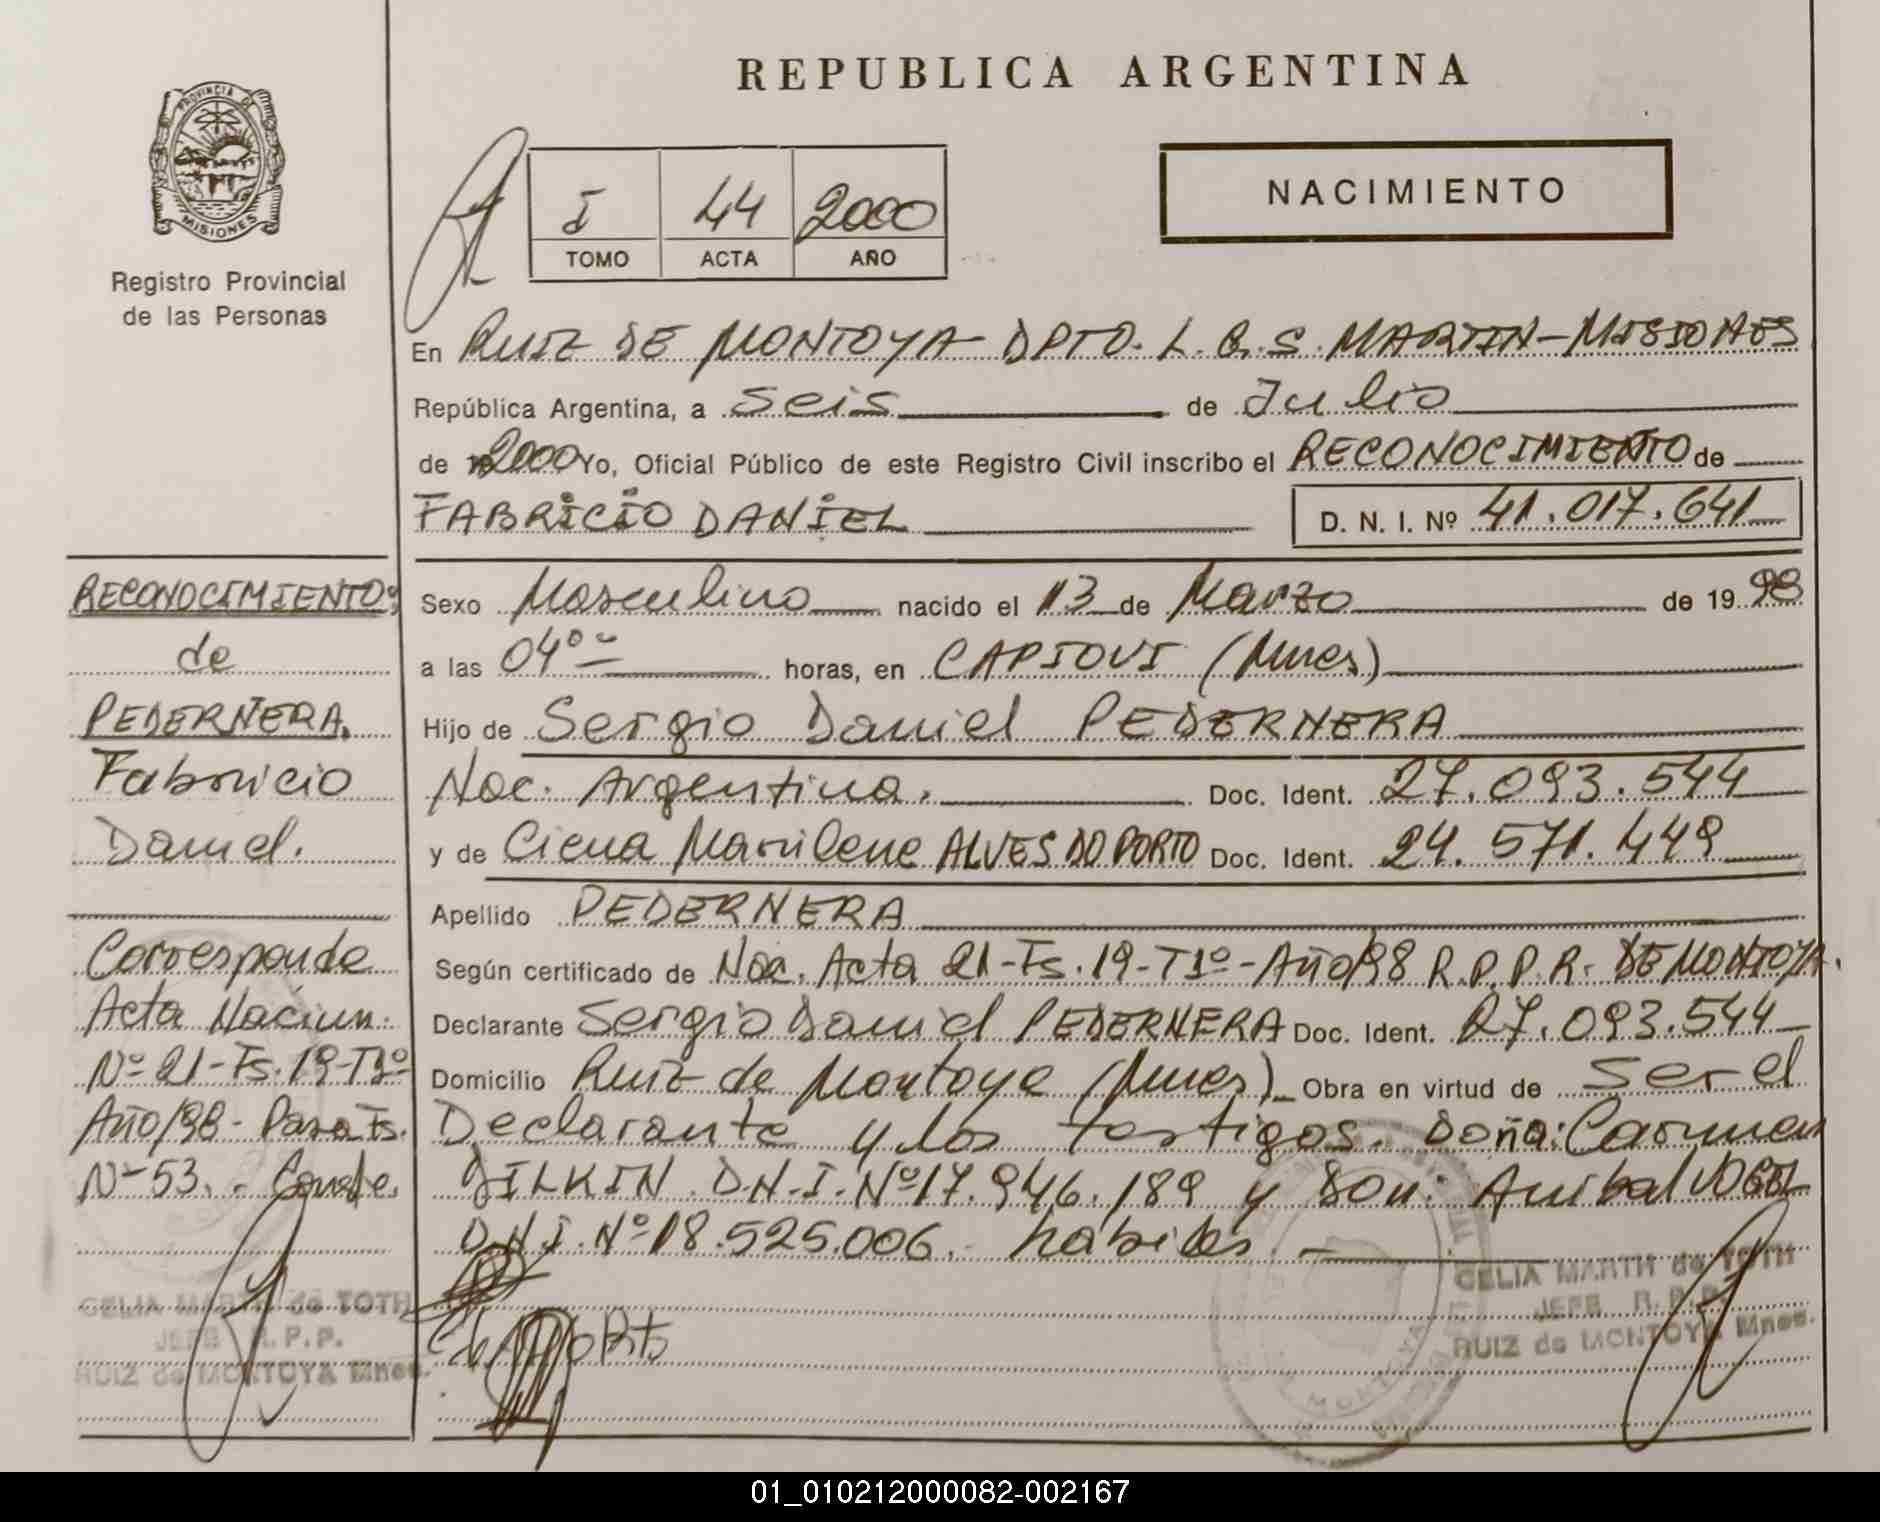 REPUBLICA ARGENTINA
PROVINCIA DE
MISIONES
Registro Provincial
de las Personas
I 44 2000
TOMO ACTA AÑO
NACIMIENTO
En RUIZ DE MONTOYA- DPTO. L. G. S. MARTIN-MISIONES
República Argentina, a Seis de Julio
de 2000 Yo, Oficial Público de este Registro Civil inscribo el RECONOCIMIENTO de
FABRICIO DANIEL D. N. I. Nº 41.017.641
Sexo Masculino nacido el 13 de Marzo de 19 98
a las 04º horas, en CAPIOVI (Mnes)
Hijo de Sergio Daniel PEDERNERA
Nac. Argentina. Doc. Ident. 27.093.544
y de Ciena Marilene ALVES DO PORTO Doc. Ident. 24.571.449
Apellido PEDERNERA
Según certificado de Nac. Acta 21-Fs.19-T1º-Año/98 R.P.P.R. DE MONTOYA.
Declarante Sergio Daniel PEDERNERA Doc. Ident. 27.093.544
Domicilio Ruiz de Montoya (Mnes) Obra en virtud de Ser el
Declarante y los testigos. Doña: Carmen
DILKIN D.N.I. Nº 17.946.189 y Don: Anibal VOGEL
D.N.I. Nº 18.525.006. habiles.
RECONOCIMIENTO:
de
PEDERNERA.
Fabricio
Daniel.
Corresponde
Acta Nacim.
Nº 21-Fs.19-T1º
Año/98- Pasa Fs.
Nº 53.- Conste.
CELIA MARTH de TOTH
JEFE R.P.P.
RUIZ de MONTOYA Mnes.
CELIA MARTH de TOTH
JEFE R.P.P.
RUIZ de MONTOYA Mnes.
01_010212000082-002167